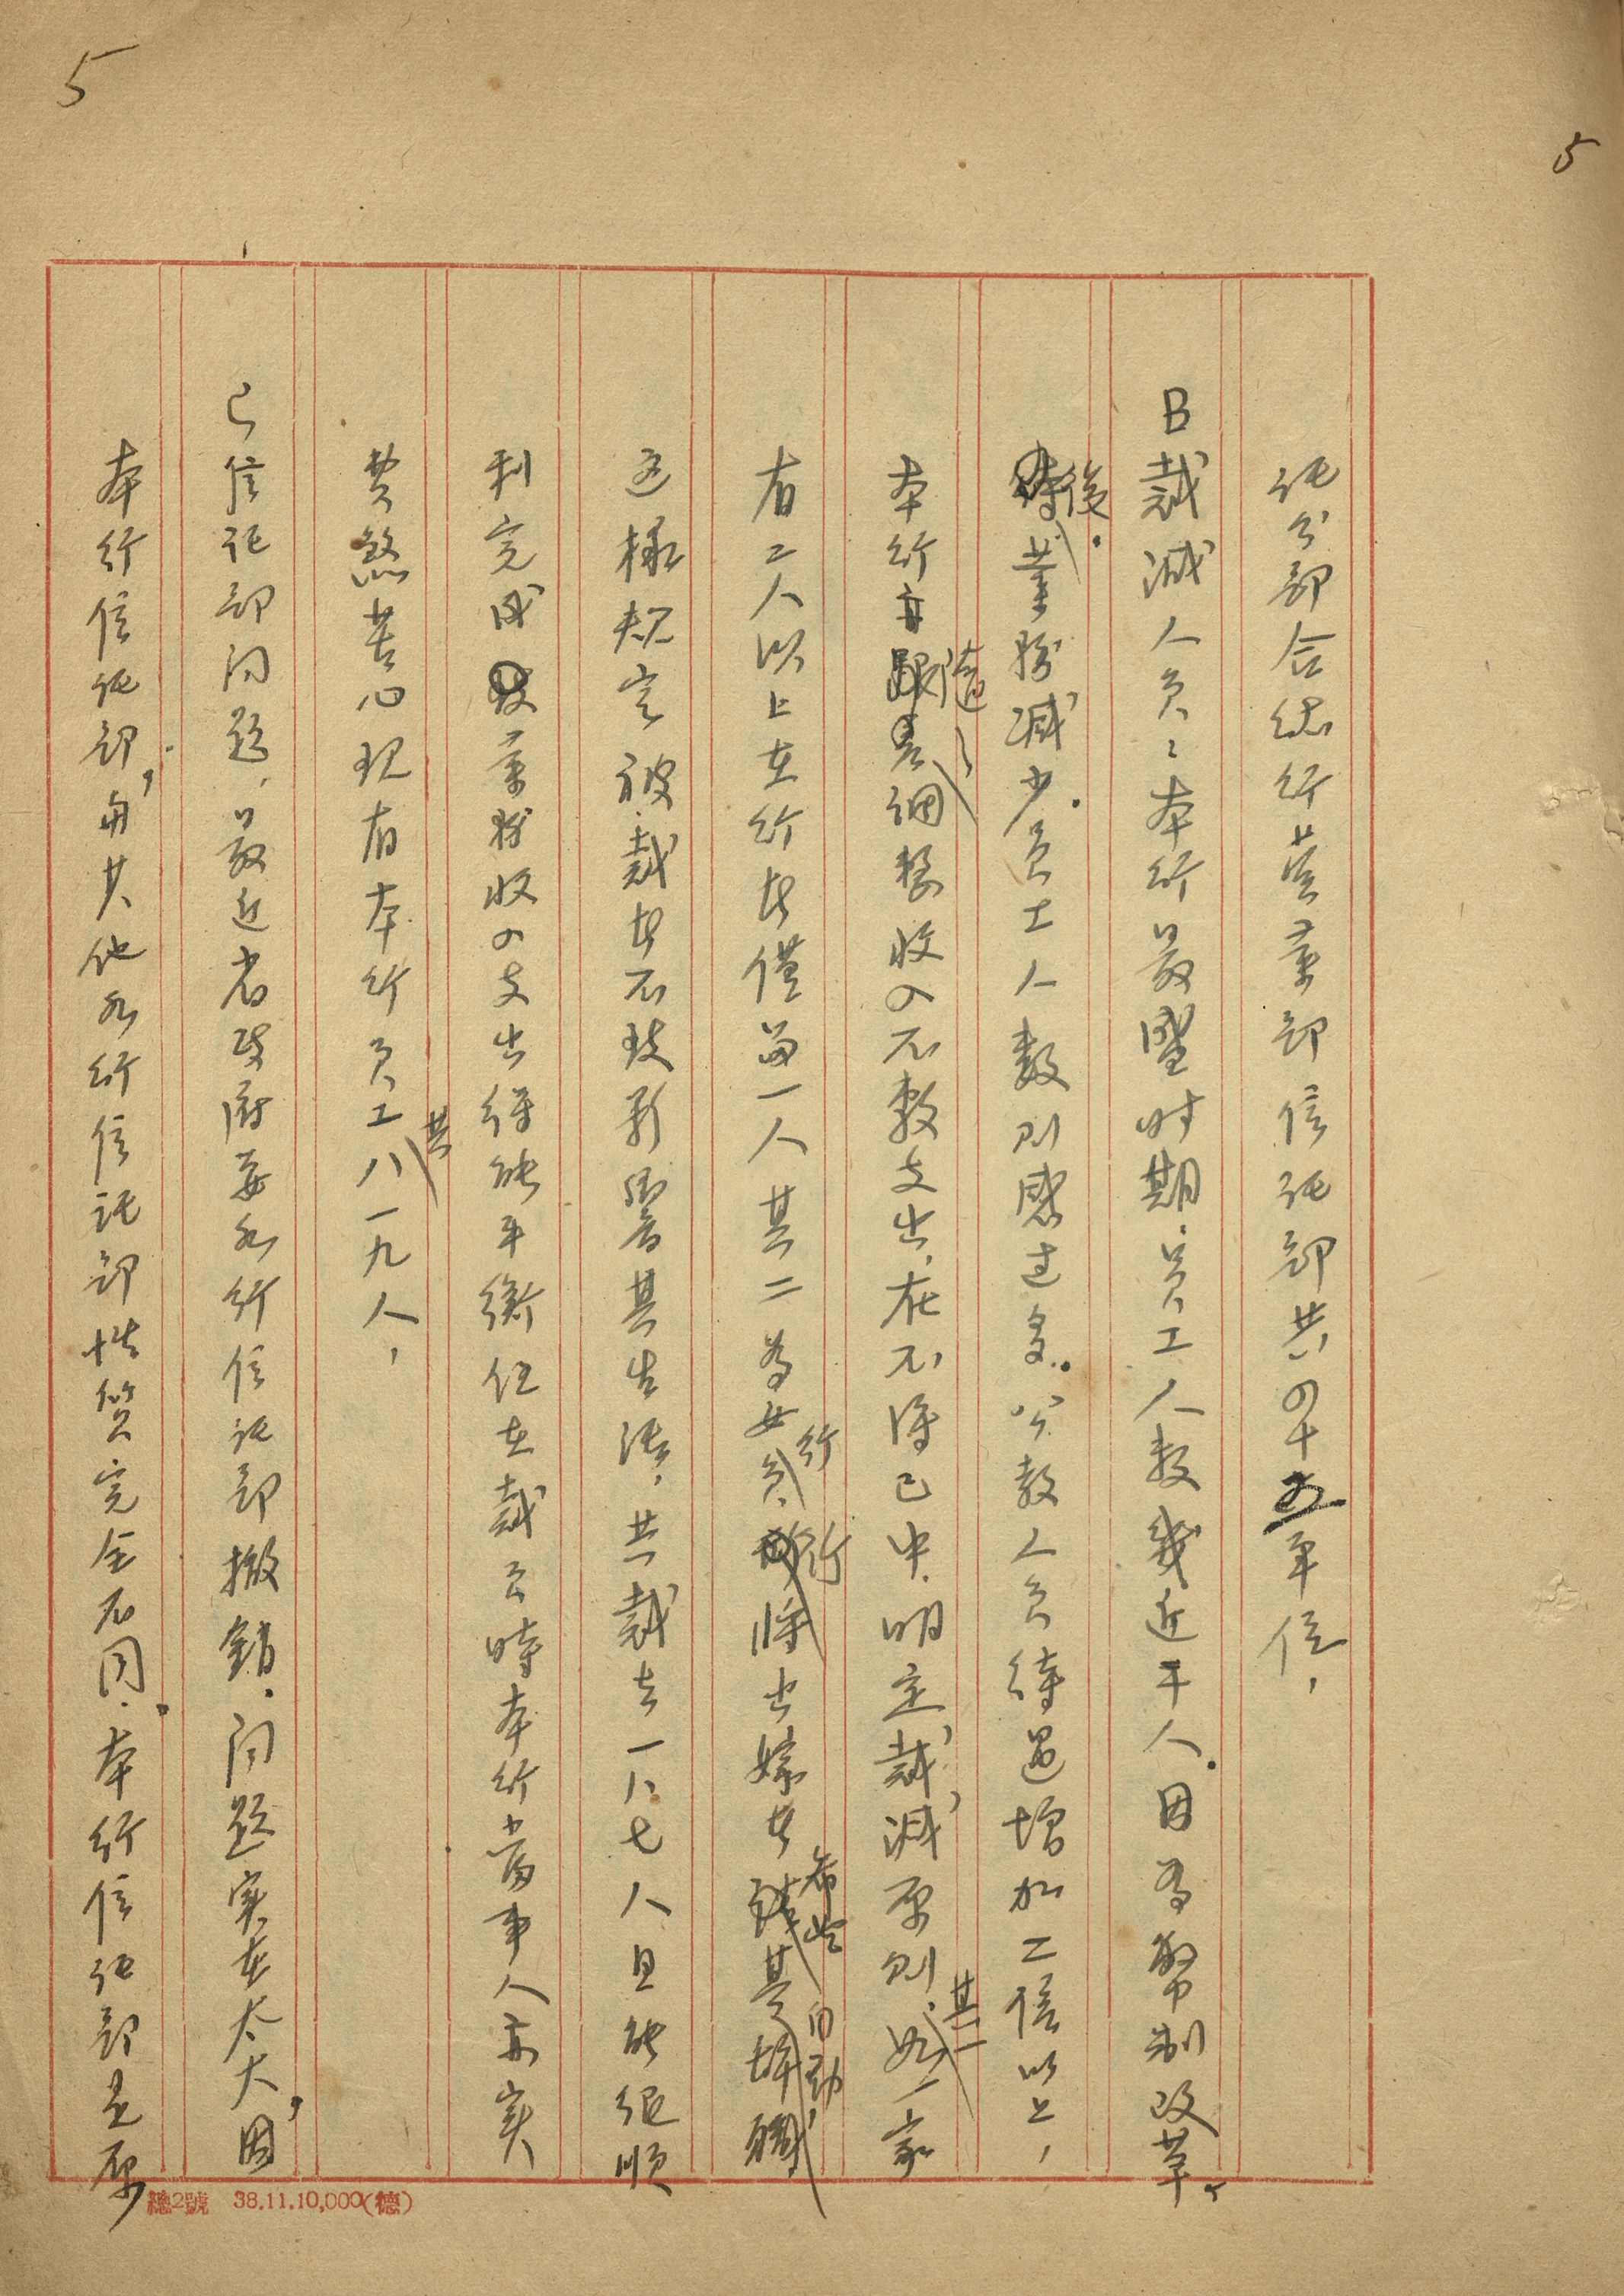 5
5
託分部合總行营業部信託部共四十五單位，
B裁減人員：本行最盛时期，員工人数幾近千人．因為幣制改革，
後．業務減少．員工人數則感过多．公教人員待遇增加二倍以上，
本行亦隨調整收入不敷支出，在不得已中．明定裁減原則，其一一家
有二人以上在行者僅留一人其二為女行員．行將出嫁者希望自動離職
这樣規定被裁者不致影響其生活，共裁去一八七人且能很順
利完成業務收入支出得能平衡但在裁員時本行當事人亦实
費煞苦心現有本行員工共八一九人，
C信託部问題，最近省政府要各行信託部撤銷．问題实在太大，因
本行信託部，與其他各行信託部性質完全不同．本行信託部是原
總2號 38.11.10,000(德)